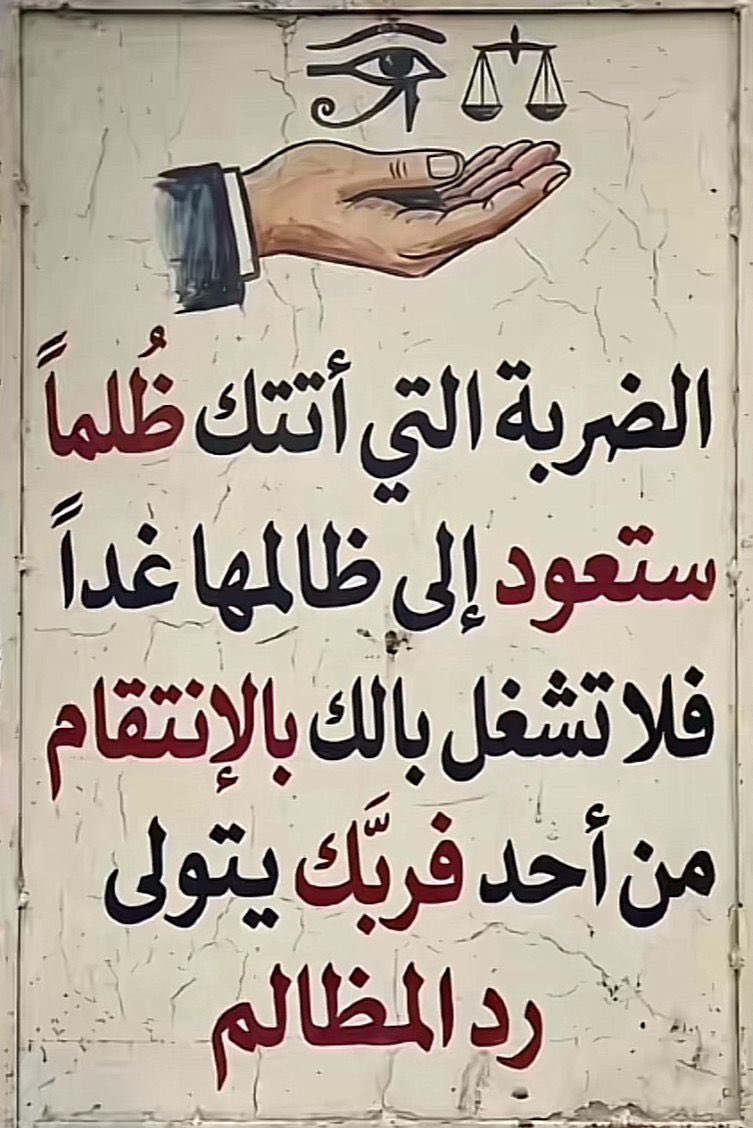 الضربة التي أتتك ظُلماً
ستعود إلى ظالمها غداً
فلا تشغل بالك بالإنتقام
من أحد فربَّك يتولى
رد المظالم